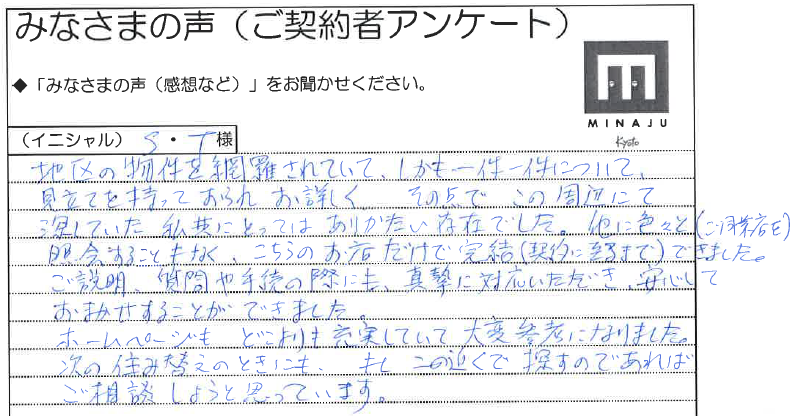 みなさまの声（ご契約者アンケート）
◆「みなさまの声（感想など）」をお聞かせください。
MINAJU
Kyoto
（イニシャル） S・T 様
地区の物件を網羅されていて、しかも一件一件について、
見立てを持っておられ お詳しく その点で この周辺にて
探していた 私共にとっては ありがたい存在でした。他に色々と（ご同業店を）
照会することもなく、こちらのお店だけで完結（契約に至るまで）できました。
ご説明、質問や手続の際にも、真摯に対応いただき、安心して
おまかせすることができました。
ホームページも どこよりも充実していて 大変参考になりました。
次の住み替えのときにも、もし この近くで 探すのであれば
ご相談しようと思っています。